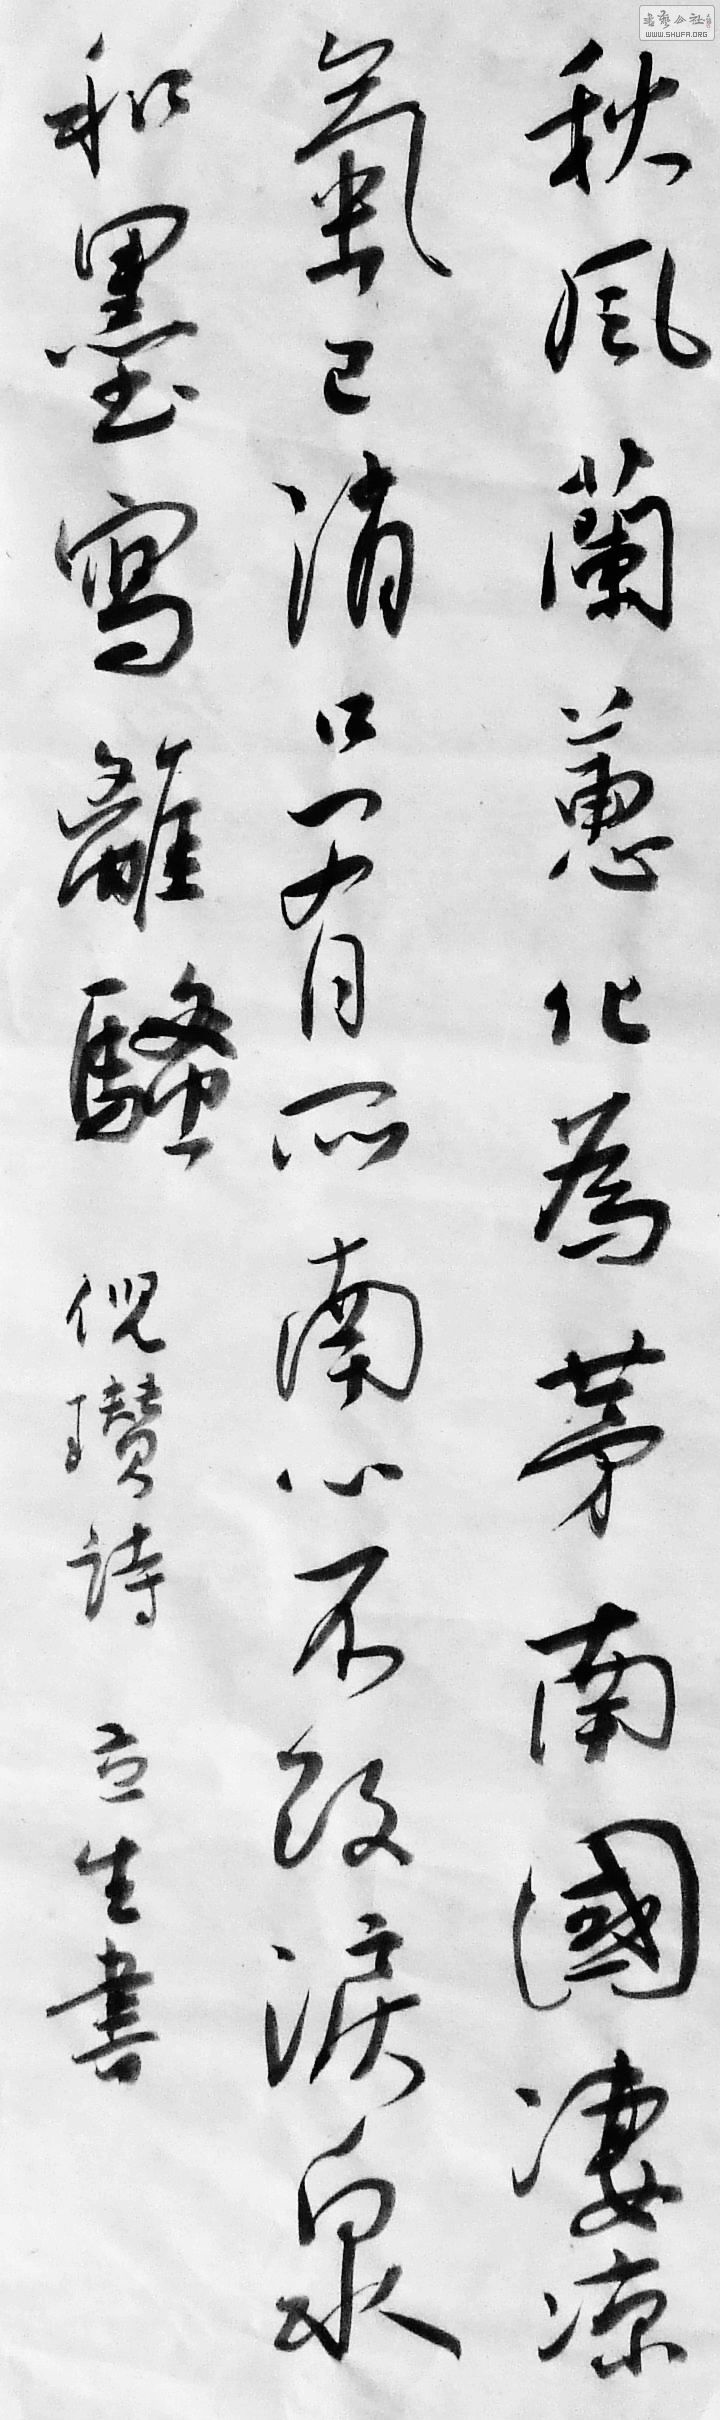 秋風蘭蕙化為茅南國凄凉
氣已消只有所南心不改淚泉
和墨寫離騷
倪瓚詩
立生書
書藝公社
WWW.SHUFA.ORG